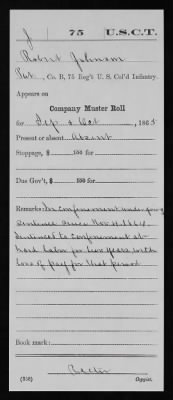 J 75 U.S.C.T.
Robert Johnson
Pvt, Co. B, 75 Reg't U. S. Col'd Infantry.
Appears on
Company Master Roll
for Sep & Oct, 1865
Present or absent Absent
Stoppage, $ 100 for
Due Gov't, $ 100 for
Remarks: In confinement undergoing
sentence since Nov. 11. 1864.
Sentenced to confinement at
hard labor for two years with
loss of pay for that period
Book mark:
(358) Copyist.